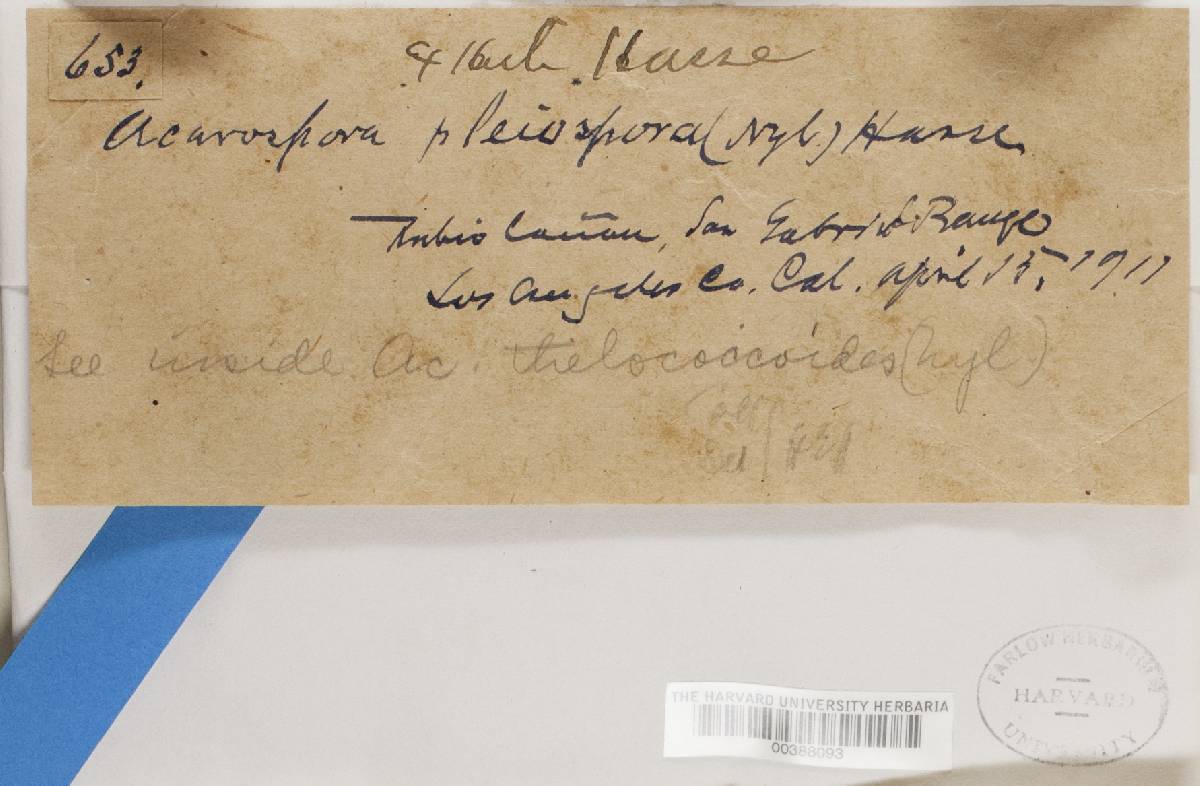 653.
Ex Herb. Hasse
Acarospora pleiospora (Nyl.) Hasse
Rubio Cañon, San Gabriel Range
Los Angeles Co. Cal. April 15, 1911
See inside Ac. thelococcoides (Nyl)
THE HARVARD UNIVERSITY HERBARIA
00388093
FARLOW HERBARIUM
HARVARD
UNIVERSITY